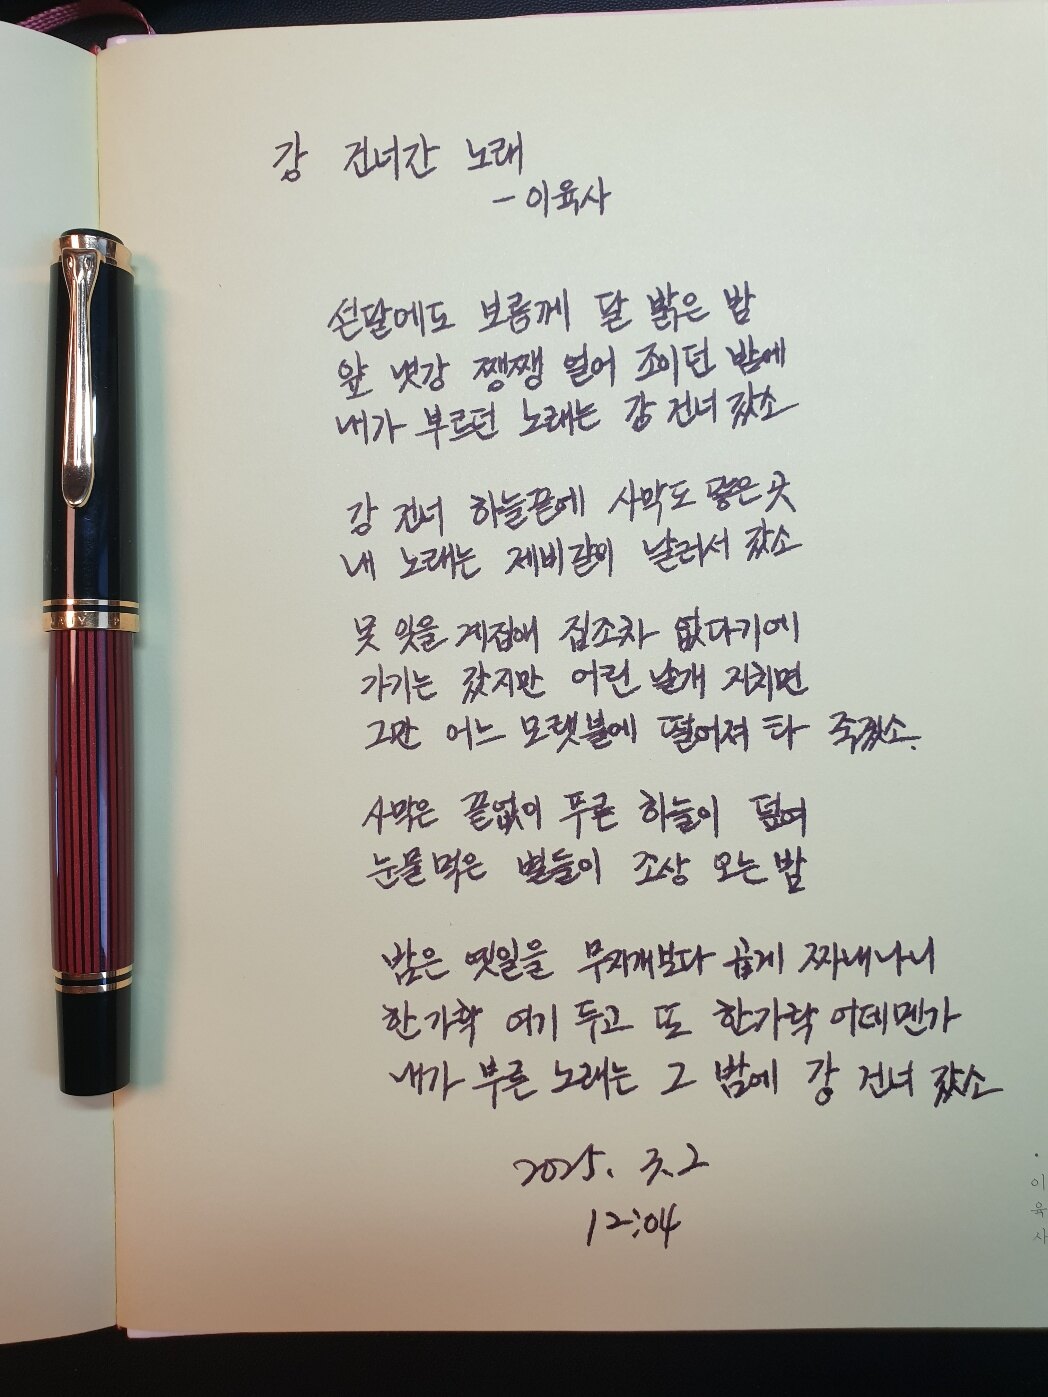 강 건너간 노래
- 이육사
섣달에도 보름께 달 밝은 밤
앞 냇강 쨍쨍 얼어 조이던 밤에
내가 부르던 노래는 강 건너 갔소
강 건너 하늘끝에 사막도 닿은 곳
내 노래는 제비같이 날러서 갔소
못 잊을 계집애 집조차 없다기에
가기는 갔지만 어린 날개 지치면
그만 어느 모랫불에 떨어져 타 죽겠소.
사막은 끝없이 푸른 하늘이 덮여
눈물먹은 별들이 조상 오는 밤
밤은 옛일을 무지개보다 곱게 짜내나니
한가락 여기 두고 또 한가락 어데멘가
내가 부른 노래는 그 밤에 강 건너 갔소
2025. 3.2
12:04
·
이
육
사